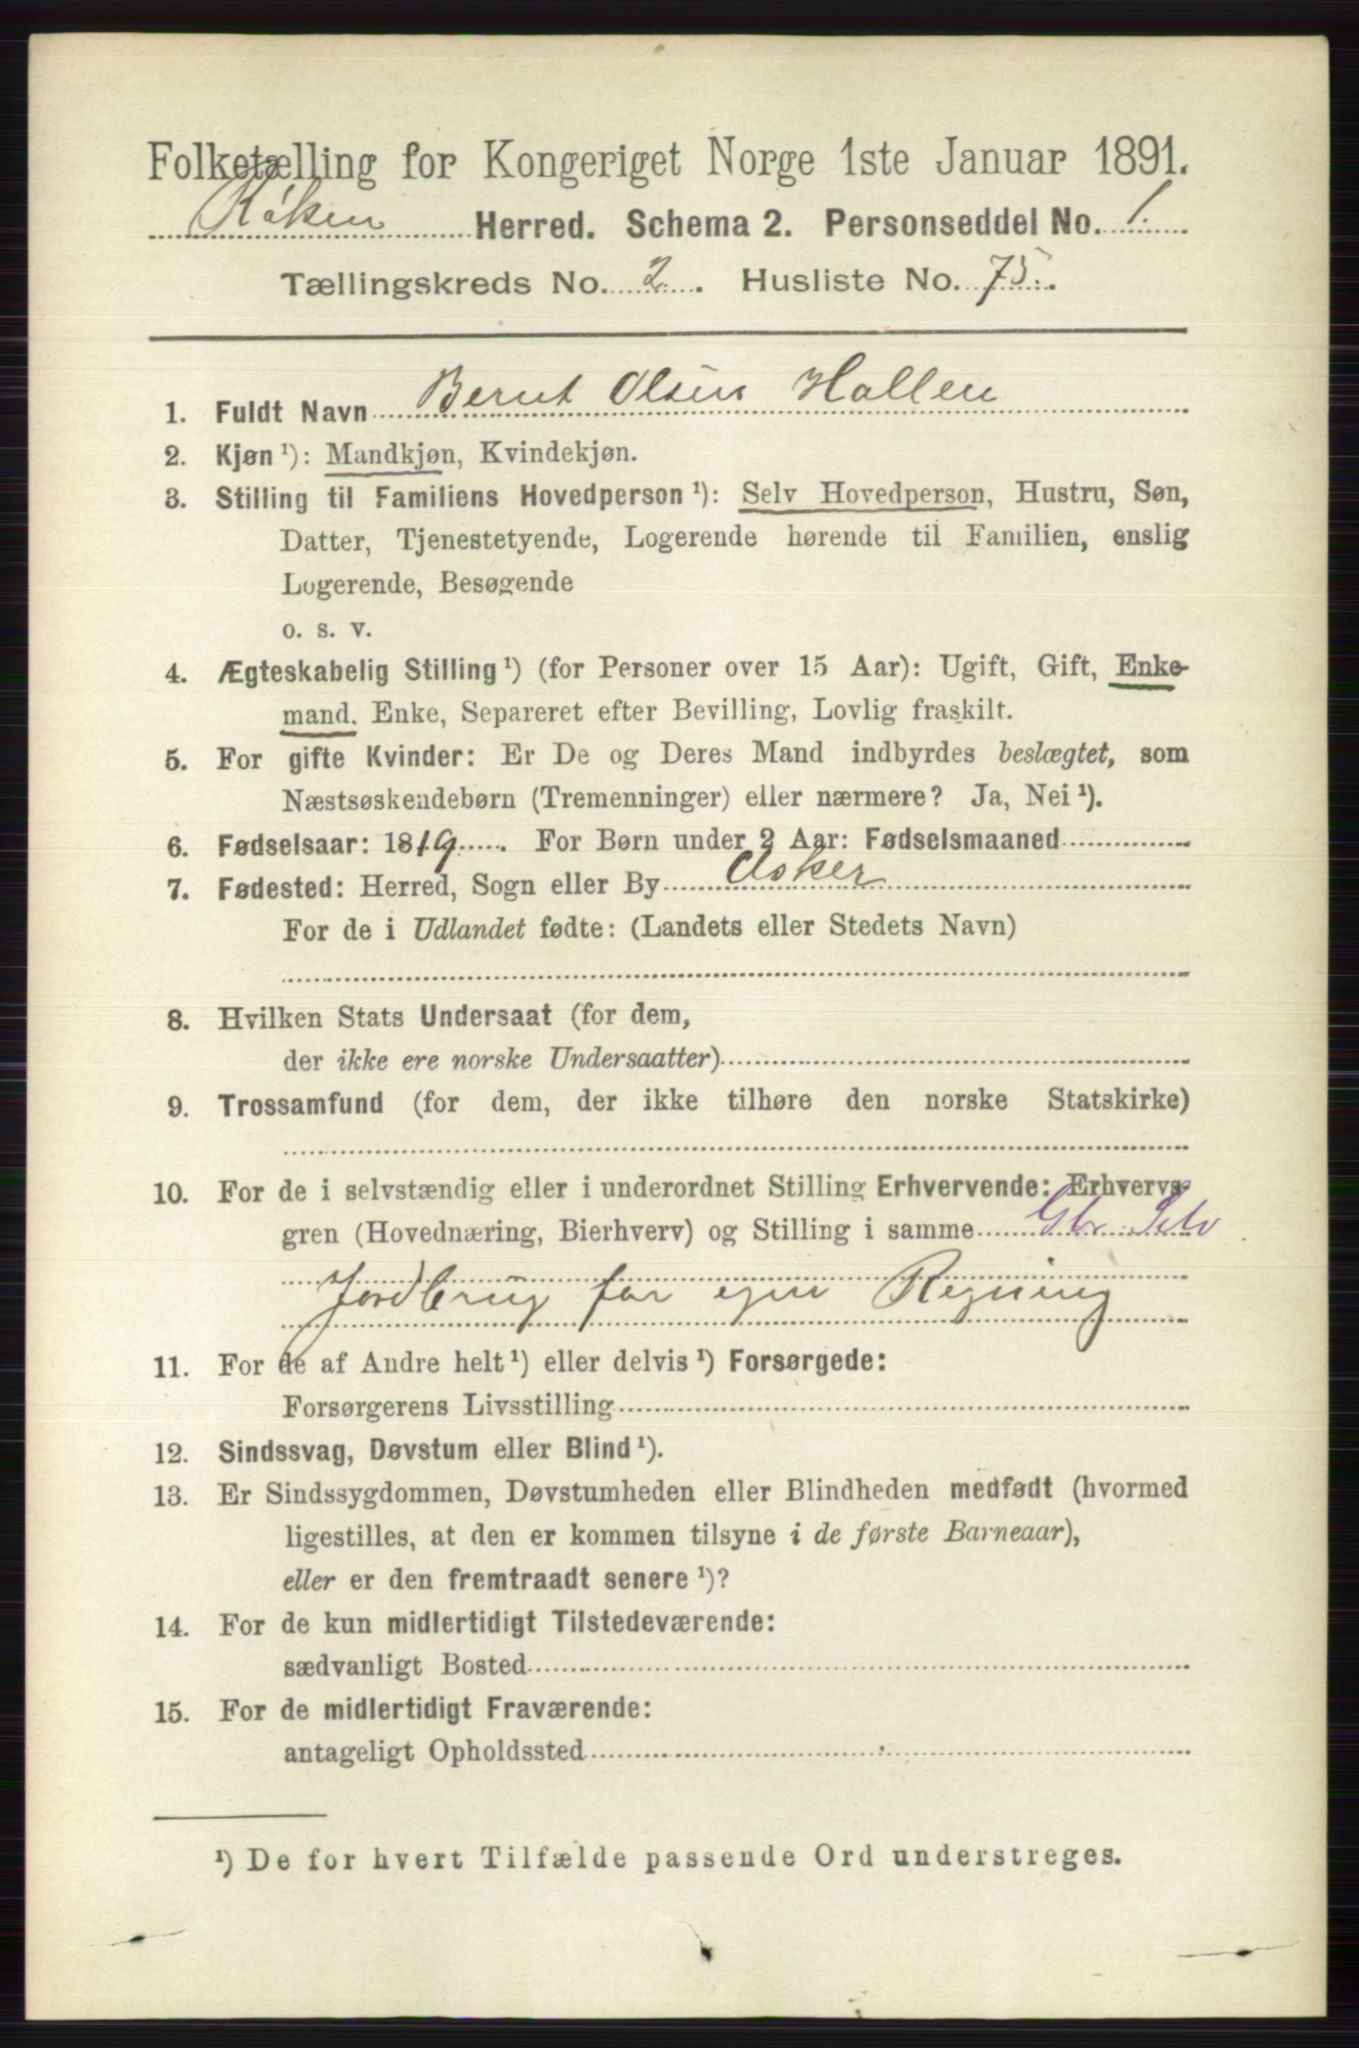 Folketælling for Kongeriget Norge 1ste Januar 1891.
Røken Herred. Schema 2. Personseddel No. 1.
Tællingskreds No. 2. Husliste No. 75.
1. Fuldt Navn Bernt Olsen Hallen
2. Kjøn ¹): Mandkjøn, Kvindekjøn.
3. Stilling til Familiens Hovedperson ¹): Selv Hovedperson, Hustru, Søn,
Datter, Tjenestetyende, Logerende hørende til Familien, enslig
Logerende, Besøgende
o. s. v.
4. Ægteskabelig Stilling ¹) (for Personer over 15 Aar): Ugift, Gift, Enke-
mand. Enke, Separeret efter Bevilling, Lovlig fraskilt.
5. For gifte Kvinder: Er De og Deres Mand indbyrdes beslægtet, som
Næstsøskendebørn (Tremenninger) eller nærmere? Ja, Nei ¹).
6. Fødselsaar: 1819. For Børn under 2 Aar: Fødselsmaaned
7. Fødested: Herred, Sogn eller By Asker
For de i Udlandet fødte: (Landets eller Stedets Navn)
8. Hvilken Stats Undersaat (for dem,
der ikke ere norske Undersaatter)
9. Trossamfund (for dem, der ikke tilhøre den norske Statskirke)
10. For de i selvstændig eller i underordnet Stilling Erhvervende: Erhvervs-
gren (Hovednæring, Bierhverv) og Stilling i samme Gbr. Selv
Jordbrug for egen Regning
11. For de af Andre helt ¹) eller delvis ¹) Forsørgede:
Forsørgerens Livsstilling
12. Sindssvag, Døvstum eller Blind ¹).
13. Er Sindssygdommen, Døvstumheden eller Blindheden medfødt (hvormed
ligestilles, at den er kommen tilsyne i de første Barneaar),
eller er den fremtraadt senere ¹)?
14. For de kun midlertidigt Tilstedeværende:
sædvanligt Bosted
15. For de midlertidigt Fraværende:
antageligt Opholdssted
¹) De for hvert Tilfælde passende Ord understreges.